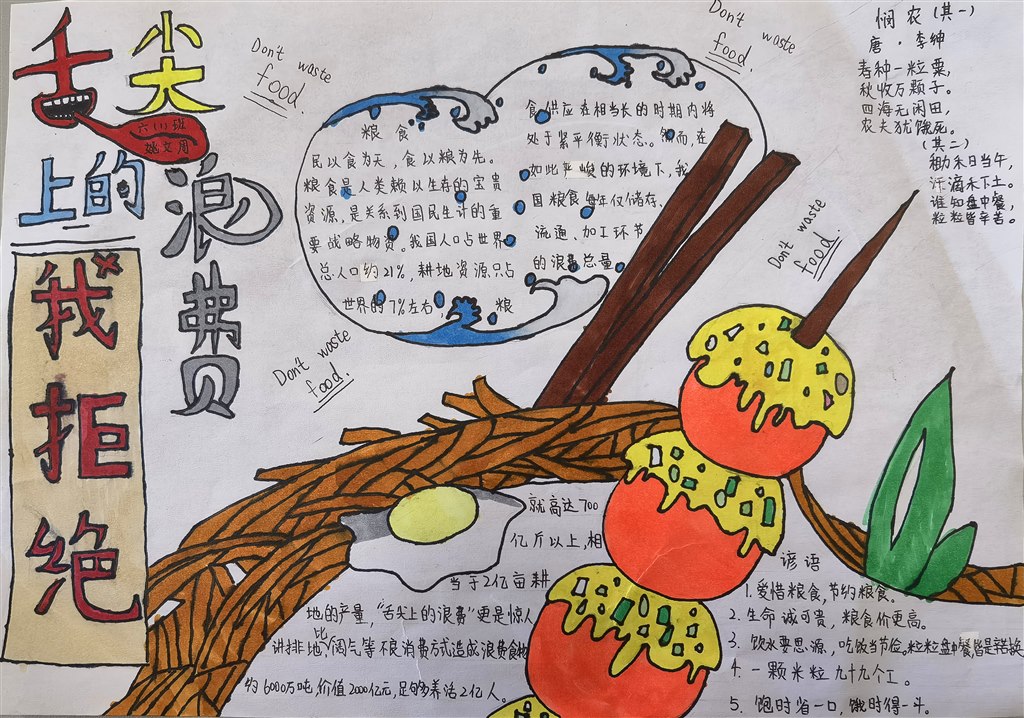 舌尖上的
浪费
我拒绝
六(1)班
姚文周
Don't waste
food
Don't waste
food.
Don't waste
food.
Don't waste
food.
粮食
民以食为天，食以粮为先。
粮食是人类赖以生存的宝贵
资源，是关系到国民生计的重
要战略物资。我国人口占世界
总人口约21%，耕地资源只占
世界的7%左右，粮
食供应在相当长的时期内将
处于紧平衡状态。然而，在
如此严峻的环境下，我
国粮食每年仅储存、
流通、加工环节
的浪费总量
就高达700
亿斤以上，相
当于2亿亩耕
地的产量，“舌尖上的浪费”更是惊人
讲排比地阔气等不良消费方式造成浪费食物
约6000万吨，价值2000亿元，足够养活2亿人。
悯农（其一）
唐·李绅
春种一粒粟，
秋收万颗子。
四海无闲田，
农夫犹饿死。
（其二）
锄禾日当午，
汗滴禾下土。
谁知盘中餐，
粒粒皆辛苦。
谚语
1. 爱惜粮食，节约粮食。
2. 生命诚可贵，粮食价更高。
3. 饮水要思源，吃饭当节俭。粒粒盘中餐，皆是辛苦换
4. 一颗米粒九十九个工。
5. 饱时省一口，饿时得一斗。